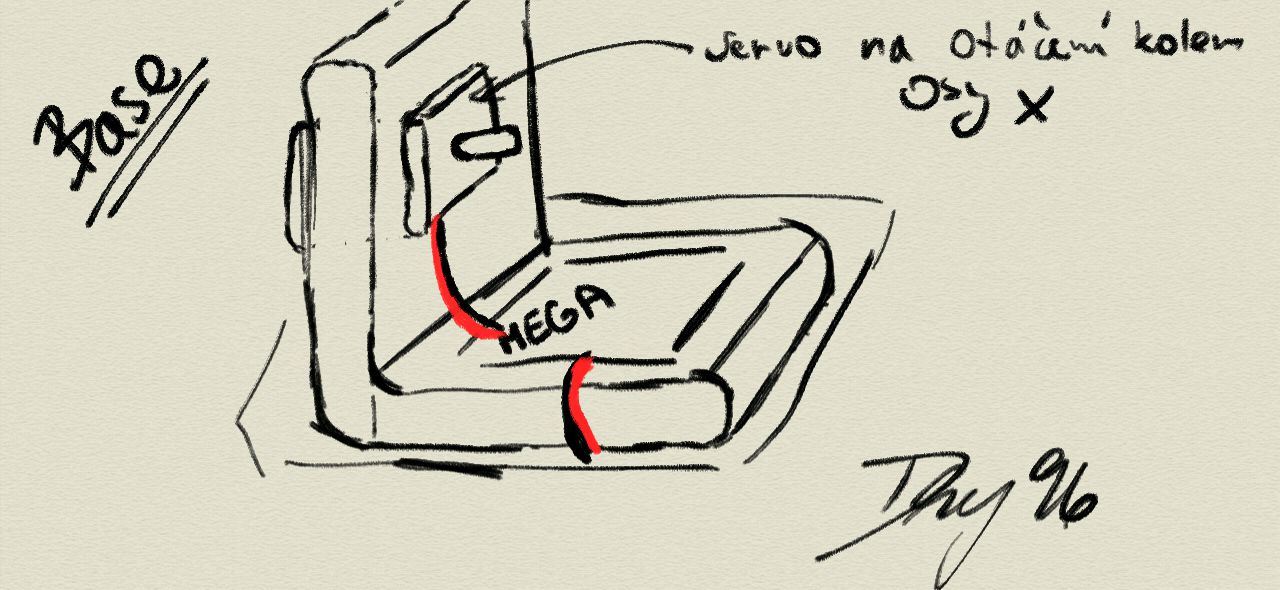 Base
servo na otáčení kolem
osy x
MEGA